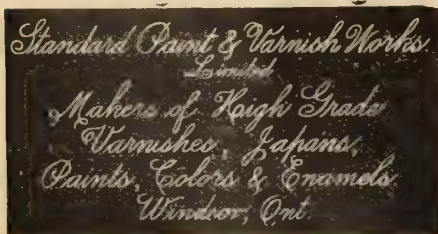 Standard Paint & Varnish Works
Limited
Makers of High Grade
Varnishes, Japans,
Paints, Colors & Enamels
Windsor, Ont.